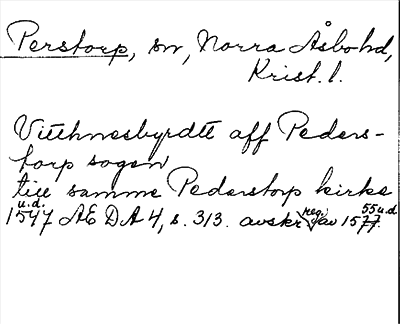 Perstorp, sn, Norra Åsbohd,
Krist. l.
Vitthnesbyrdtt aff Peders-
torp sogen
till samme Pederstorp kirke
u.d. 1547 AE DA 4, s. 313. avskr. reg. av 1577. 55 u.d.